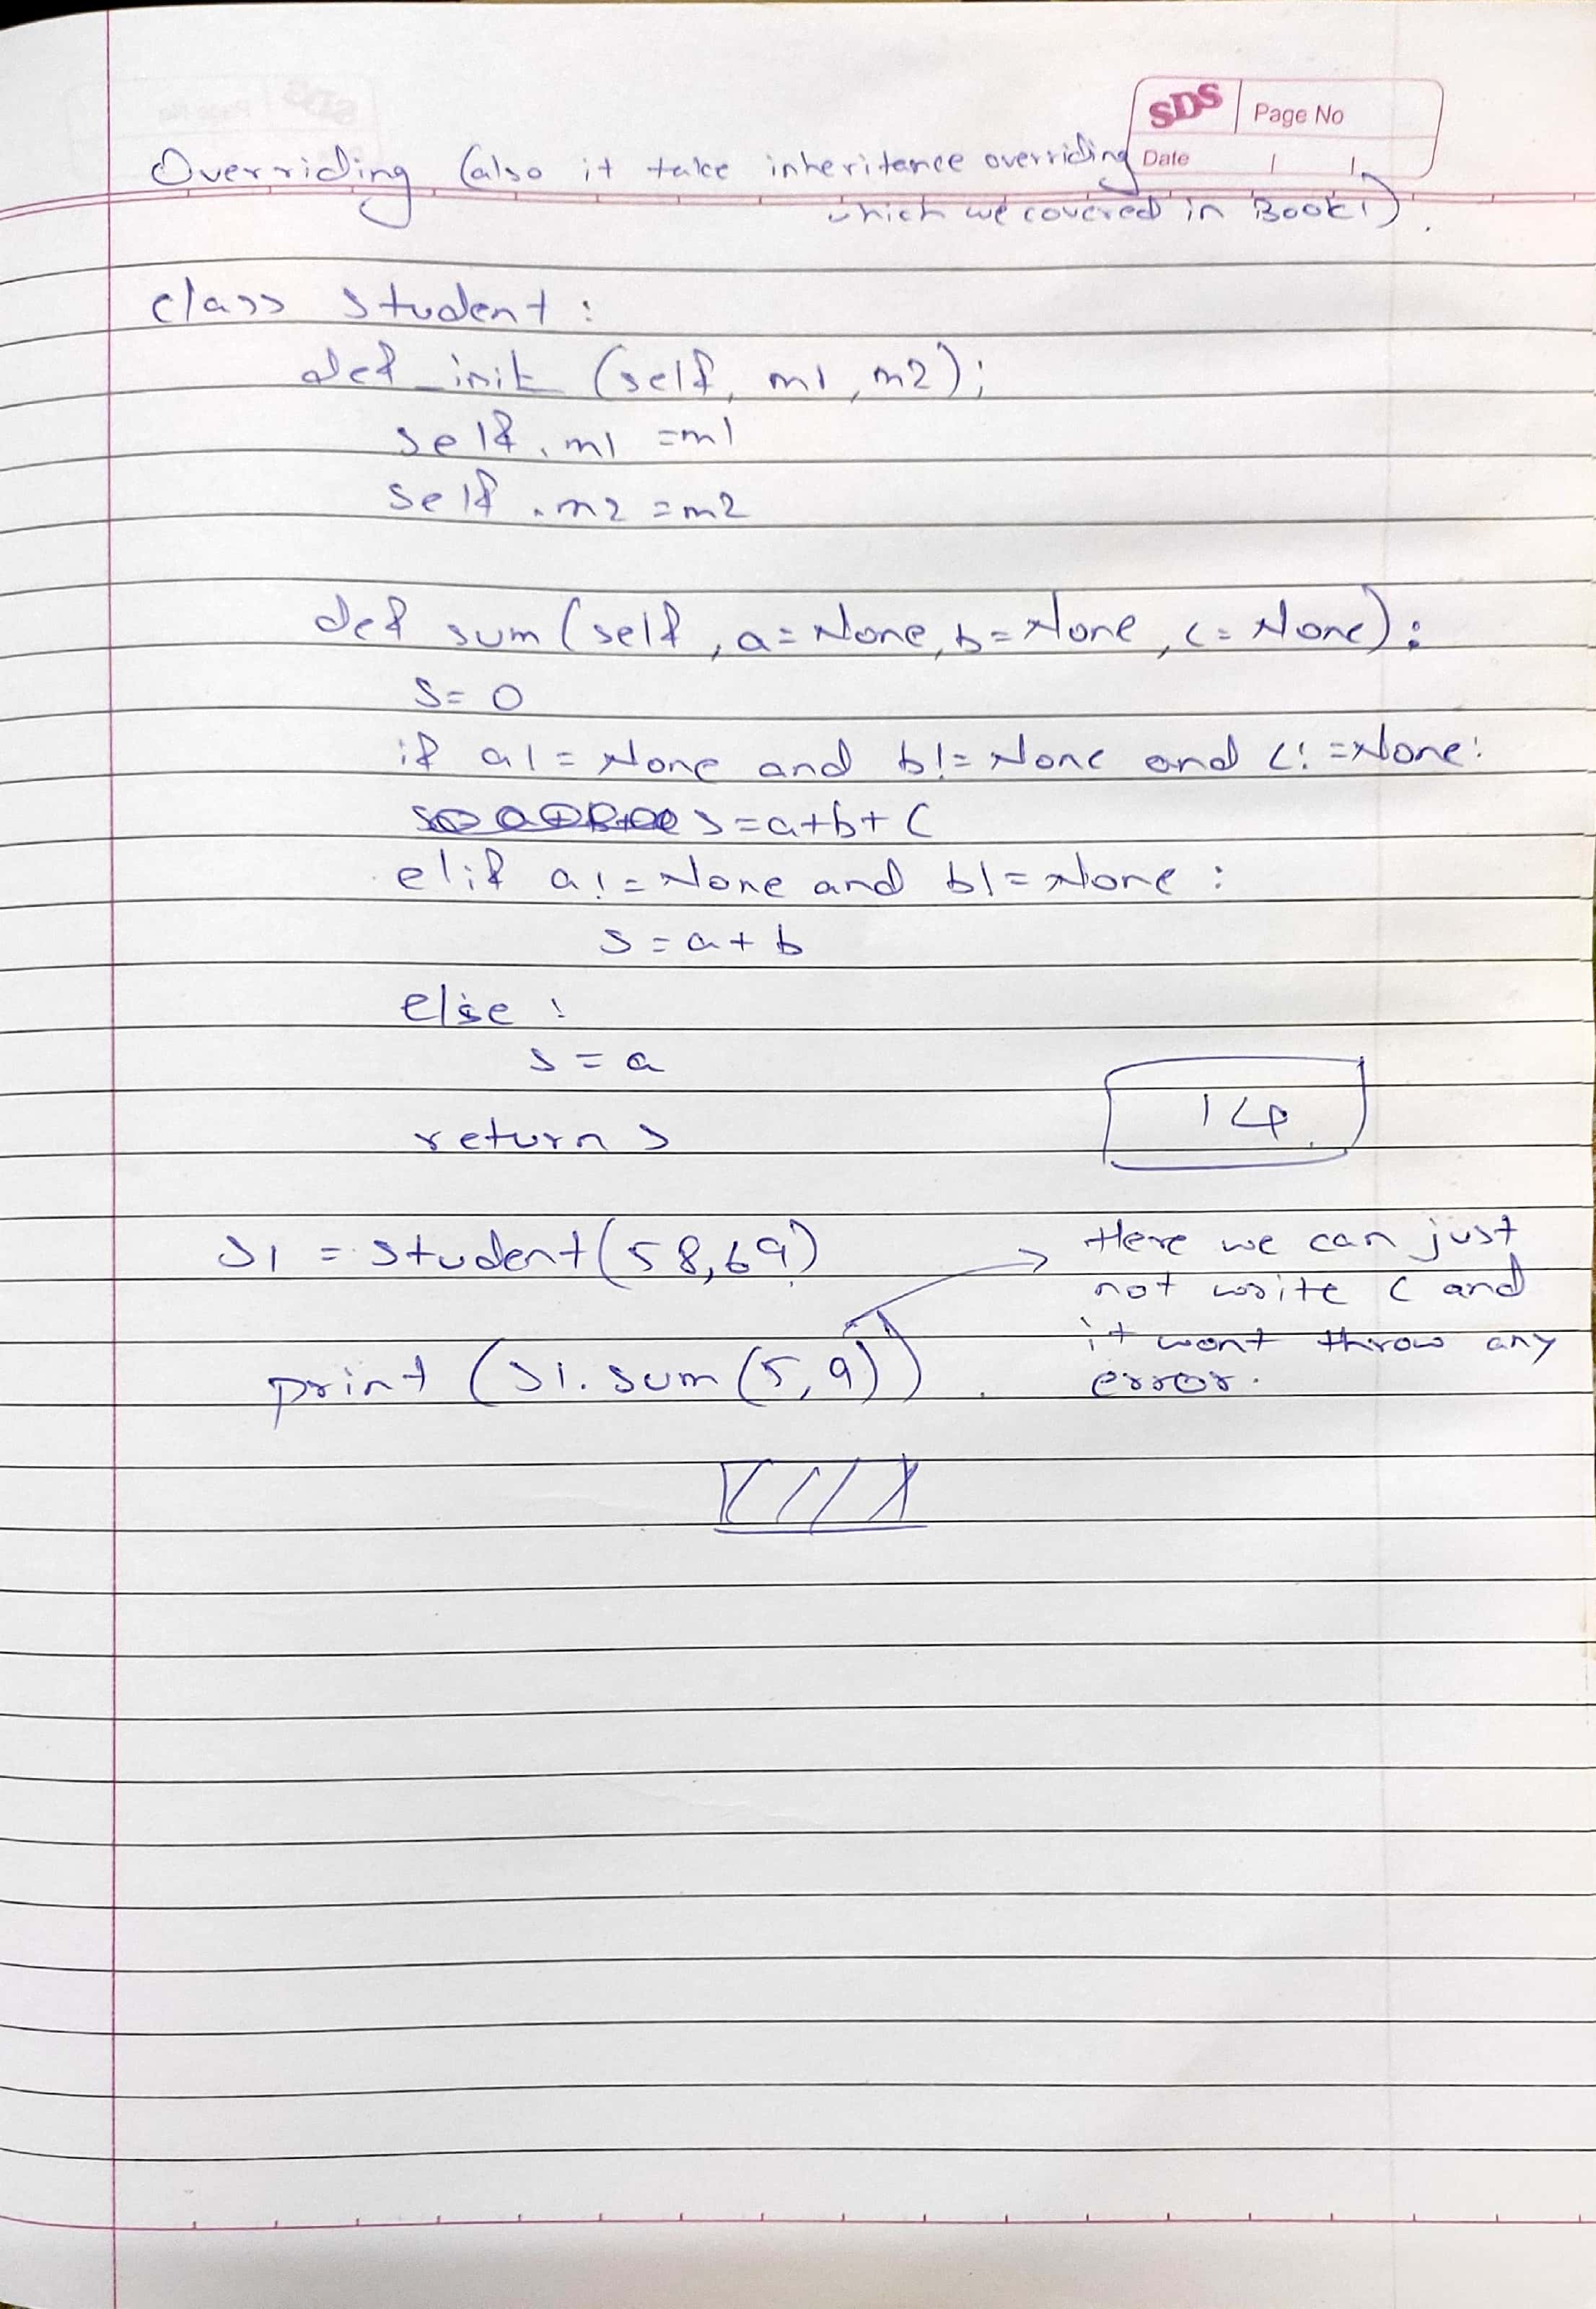 SDS Page No
Date
Overriding (also it take inheritance overriding
which we covered in Book1).
class student:
def _init_ (self, m1, m2);
self.m1 =m1
self.m2 =m2
def sum(self, a=None, b=None, c=None):
s=0
if a!=None and b!=None and c!=None:
s=a+b+c
elif a!=None and b!=None:
s=a+b
else:
s=a
return s
14.
s1 = student(58,69)
Here we can just
not write c and
it wont throw any
error.
print (s1.sum(5,9)).